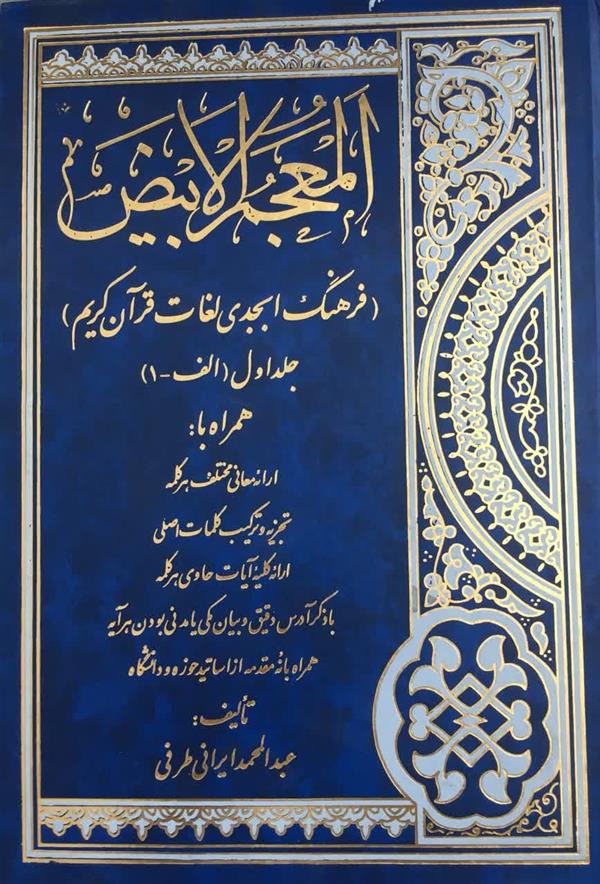 المعجم الابیض
(فرهنگ ابجدی لغات قرآن کریم)
جلد اول (الف-۱)
همراه با:
ارائه معانی مختلف هر کلمه
تجزیه و ترکیب کلمات اصلی
ارائه کلیۀ آیات حاوی هر کلمه
با ذکر آدرس دقیق و بیان مکی یا مدنی بودن هر آیه
همراه با نه مقدمه از اساتید حوزه و دانشگاه
تألیف:
عبدالمحمد ایرانی طرفی